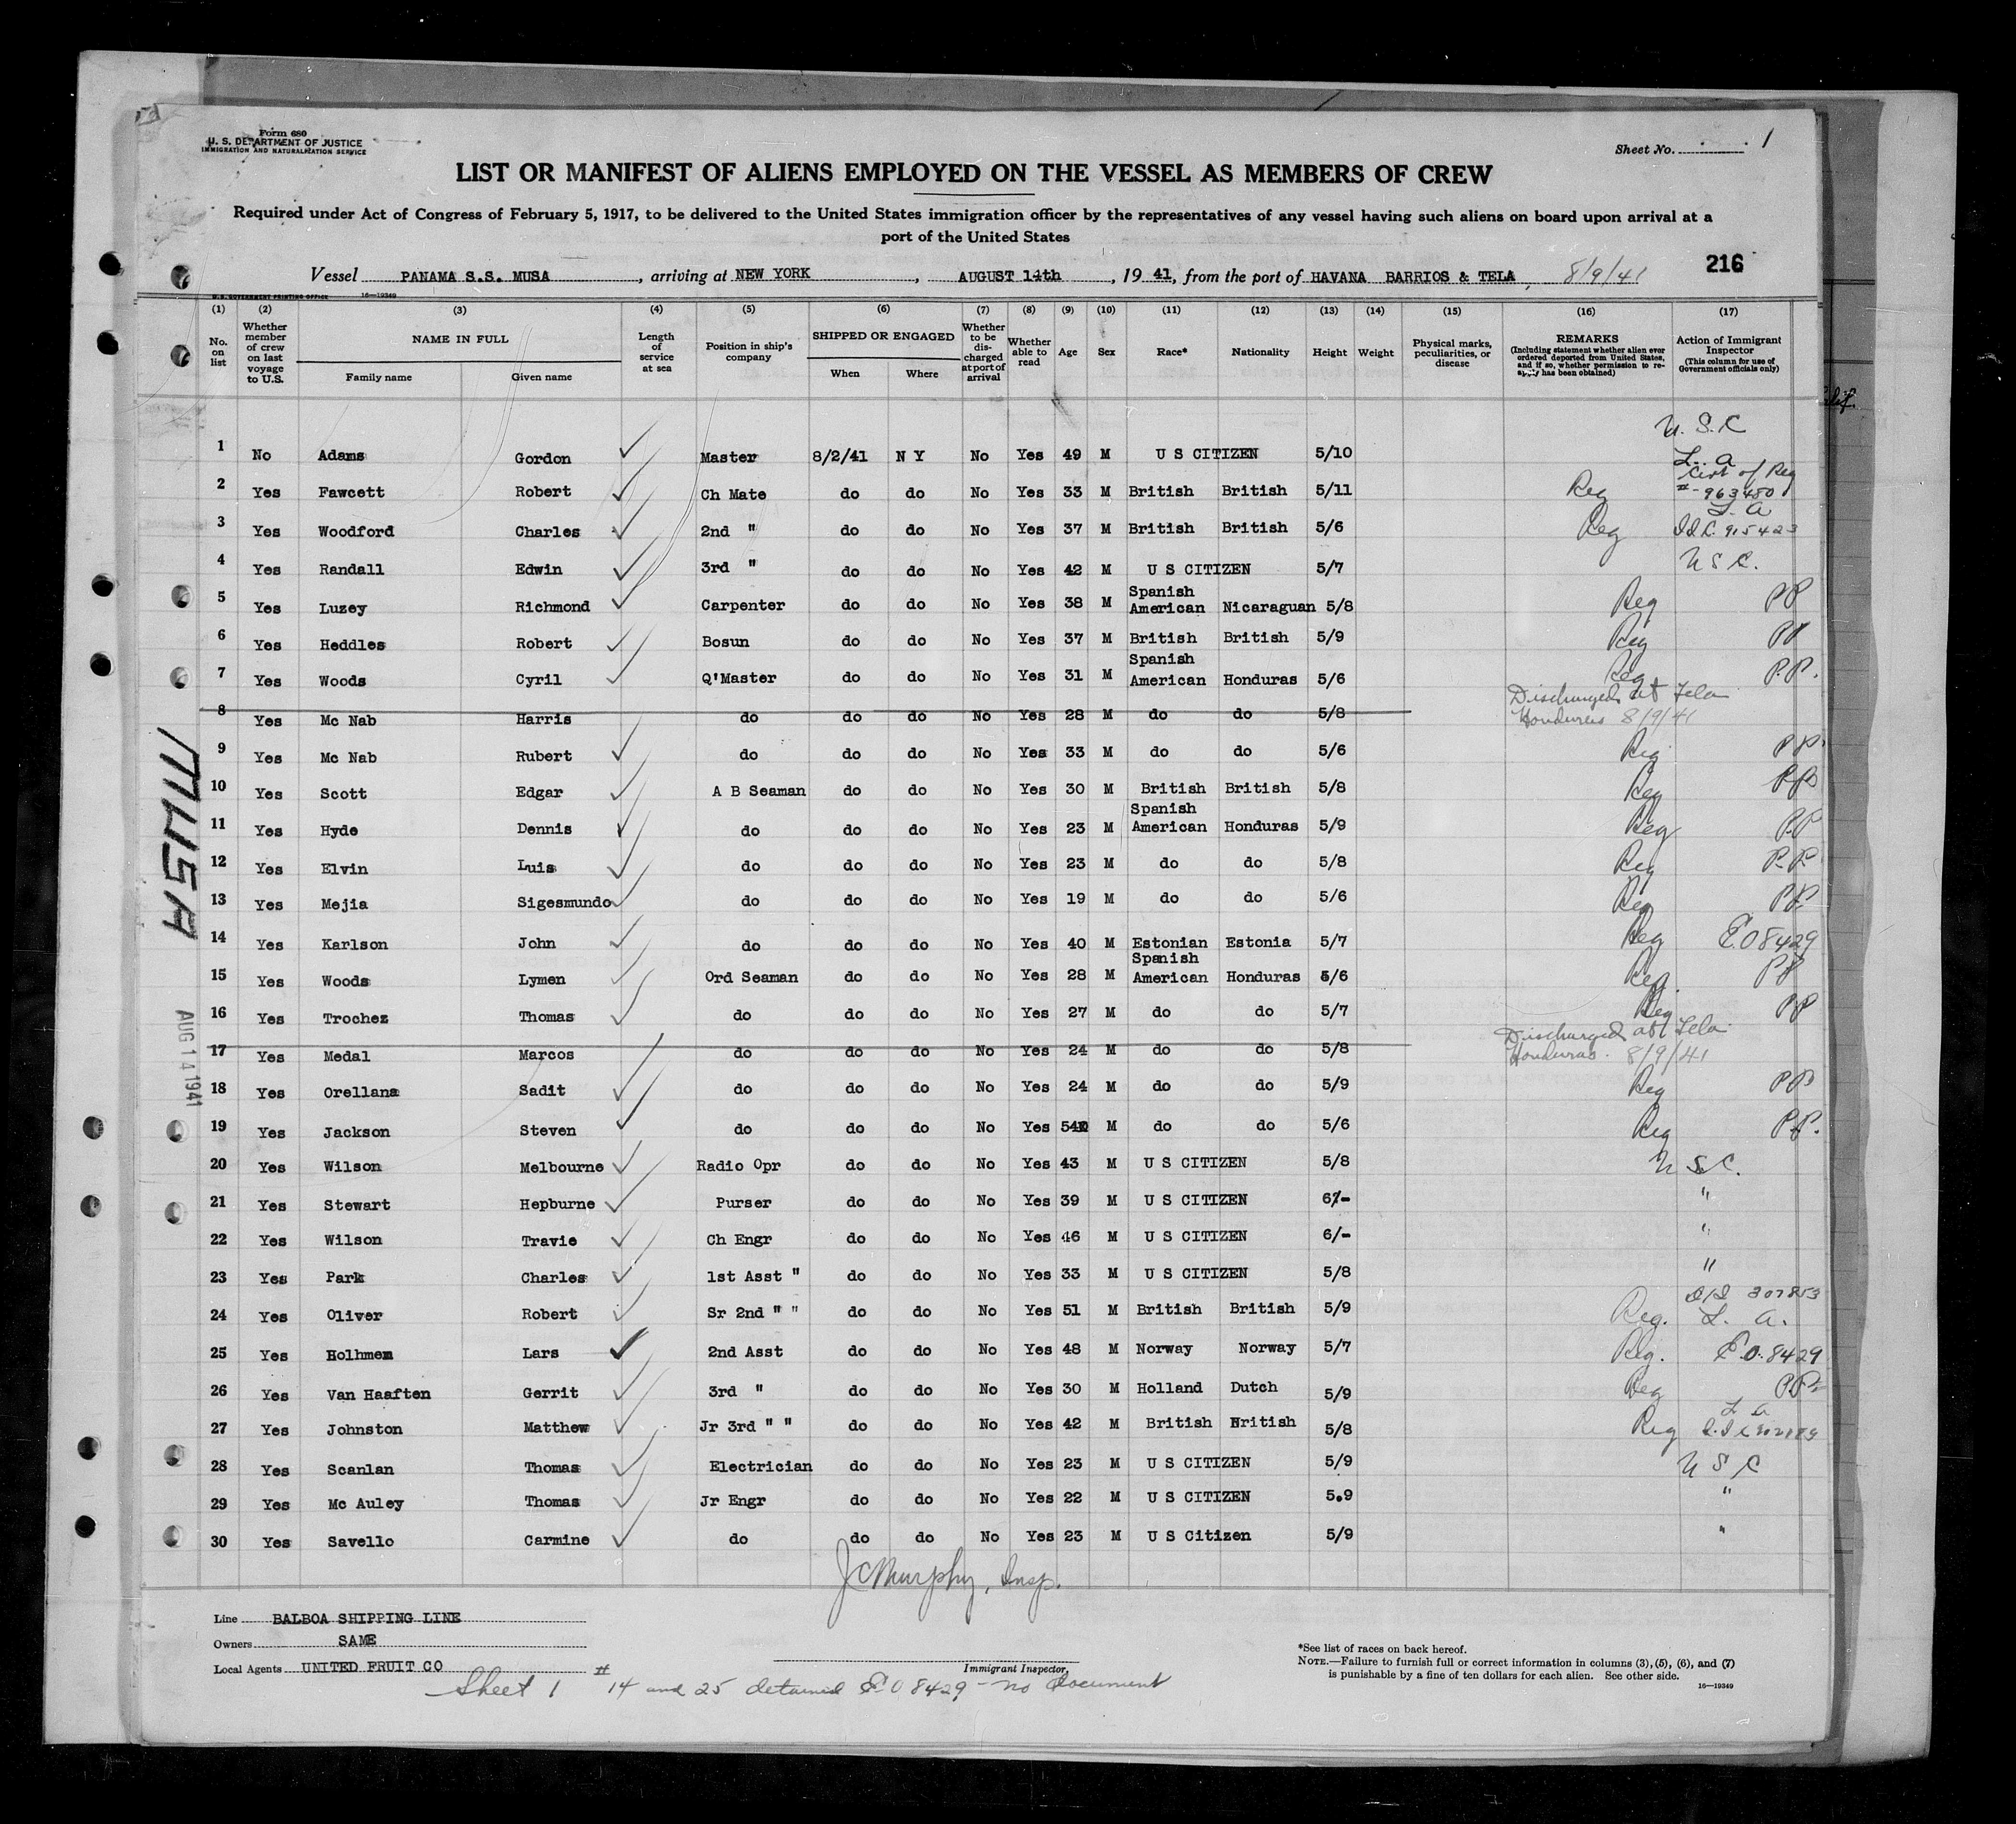 Form 680
U. S. DEPARTMENT OF JUSTICE
IMMIGRATION AND NATURALIZATION SERVICE
Sheet No. 1
LIST OR MANIFEST OF ALIENS EMPLOYED ON THE VESSEL AS MEMBERS OF CREW
Required under Act of Congress of February 5, 1917, to be delivered to the United States immigration officer by the representatives of any vessel having such aliens on board upon arrival at a
port of the United States
216
Vessel PANAMA S.S. MUSA, arriving at NEW YORK, AUGUST 14th, 19 41, from the port of HAVANA BARRIOS & TELA, 8/9/41
U.S. GOVERNMENT PRINTING OFFICE 16—19349
(1) (2) (3) (4) (5) (6) (7) (8) (9) (10) (11) (12) (13) (14) (15) (16) (17)
No. on list
Whether member of crew on last voyage to U.S.
NAME IN FULL
Family name Given name
Length of service at sea
Position in ship's company
SHIPPED OR ENGAGED
When Where
Whether to be discharged at port of arrival
Whether able to read
Age
Sex
Race*
Nationality
Height
Weight
Physical marks, peculiarities, or disease
REMARKS
(Including statement whether alien ever ordered deported from United States, and if so, whether permission to reapply has been obtained)
Action of Immigrant Inspector
(This column for use of Government officials only)
1 No Adams Gordon Master 8/2/41 N Y No Yes 49 M U S CITIZEN 5/10 U. S. C
2 Yes Fawcett Robert Ch Mate do do No Yes 33 M British British 5/11 Reg L. A Cert of Reg # 963480
3 Yes Woodford Charles 2nd " do do No Yes 37 M British British 5/6 Reg L. A 915423
4 Yes Randall Edwin 3rd " do do No Yes 42 M U S CITIZEN 5/7 U S C.
5 Yes Luzey Richmond Carpenter do do No Yes 38 M Spanish American Nicaraguan 5/8 Reg PP
6 Yes Heddles Robert Bosun do do No Yes 37 M British British 5/9 Reg PP
7 Yes Woods Cyril Q'Master do do No Yes 31 M Spanish American Honduras 5/6 Reg P.P.
8 Yes Mc Nab Harris do do do No Yes 28 M do do 5/8 Discharged at Tela Honduras 8/9/41
9 Yes Mc Nab Rubert do do do No Yes 33 M do do 5/6 Reg P P
10 Yes Scott Edgar A B Seaman do do No Yes 30 M British British 5/8 Reg P.P.
11 Yes Hyde Dennis do do do No Yes 23 M Spanish American Honduras 5/9 Reg P.P
12 Yes Elvin Luis do do do No Yes 23 M do do 5/8 Reg P.P.
13 Yes Mejia Sigesmundo do do do No Yes 19 M do do 5/6 Reg P.P.
14 Yes Karlson John do do do No Yes 40 M Estonian Estonia 5/7 Reg E.O 8429
15 Yes Woods Lymen Ord Seaman do do No Yes 28 M Spanish American Honduras 5/6 Reg. PP
16 Yes Trochez Thomas do do do No Yes 27 M do do 5/7 Reg PP
17 Yes Medal Marcos do do do No Yes 24 M do do 5/8 Discharged at Tela Honduras. 8/9/41
18 Yes Orellana Sadit do do do No Yes 24 M do do 5/9 Reg PP
19 Yes Jackson Steven do do do No Yes M do do 5/6 Reg P.P.
20 Yes Wilson Melbourne Radio Opr do do No Yes 43 M U S CITIZEN 5/8 U S. C.
21 Yes Stewart Hepburne Purser do do No Yes 39 M U S CITIZEN 6/- "
22 Yes Wilson Travie Ch Engr do do No Yes 46 M U S CITIZEN 6/- "
23 Yes Park Charles 1st Asst " do do No Yes 33 M U S CITIZEN 5/8 "
24 Yes Oliver Robert Sr 2nd " " do do No Yes 51 M British British 5/9 Reg. 307853 L. A.
25 Yes Holhmen Lars 2nd Asst do do No Yes 48 M Norway Norway 5/7 Reg. E.O. 8429
26 Yes Van Haaften Gerrit 3rd " do do No Yes 30 M Holland Dutch 5/9 Reg P.P.
27 Yes Johnston Matthew Jr 3rd " " do do No Yes 42 M British British 5/8 Reg L A
28 Yes Scanlan Thomas Electrician do do No Yes 23 M U S CITIZEN 5/9 U S C
29 Yes Mc Auley Thomas Jr Engr do do No Yes 22 M U S CITIZEN 5.9 "
30 Yes Savello Carmine do do do No Yes 23 M U S Citizen 5/9 "
MUSA
AUG 14 1941
J C Murphy, Insp.
Line BALBOA SHIPPING LINE
Owners SAME
Local Agents UNITED FRUIT CO
Immigrant Inspector.
*See list of races on back hereof.
NOTE.—Failure to furnish full or correct information in columns (3), (5), (6), and (7)
is punishable by a fine of ten dollars for each alien. See other side.
16—19349
Sheet 1 # 14 and 25 detained E.O 8429 - no document